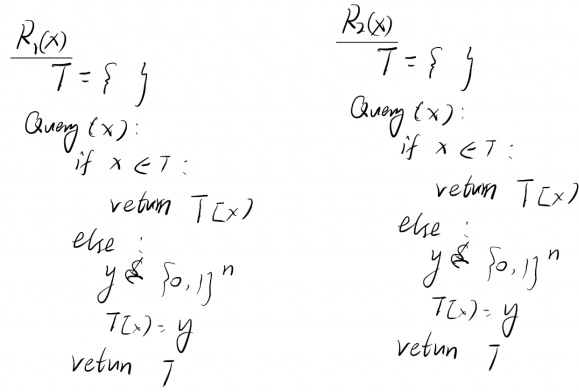 R₁(x)
T = { }
Query (x):
if x ∈ T :
return T[x)
else :
y $ {0,1}ⁿ
T[x) = y
return T
R₂(x)
T = { }
Query (x):
if x ∈ T :
return T[x)
else :
y $ {0,1}ⁿ
T[x) = y
return T